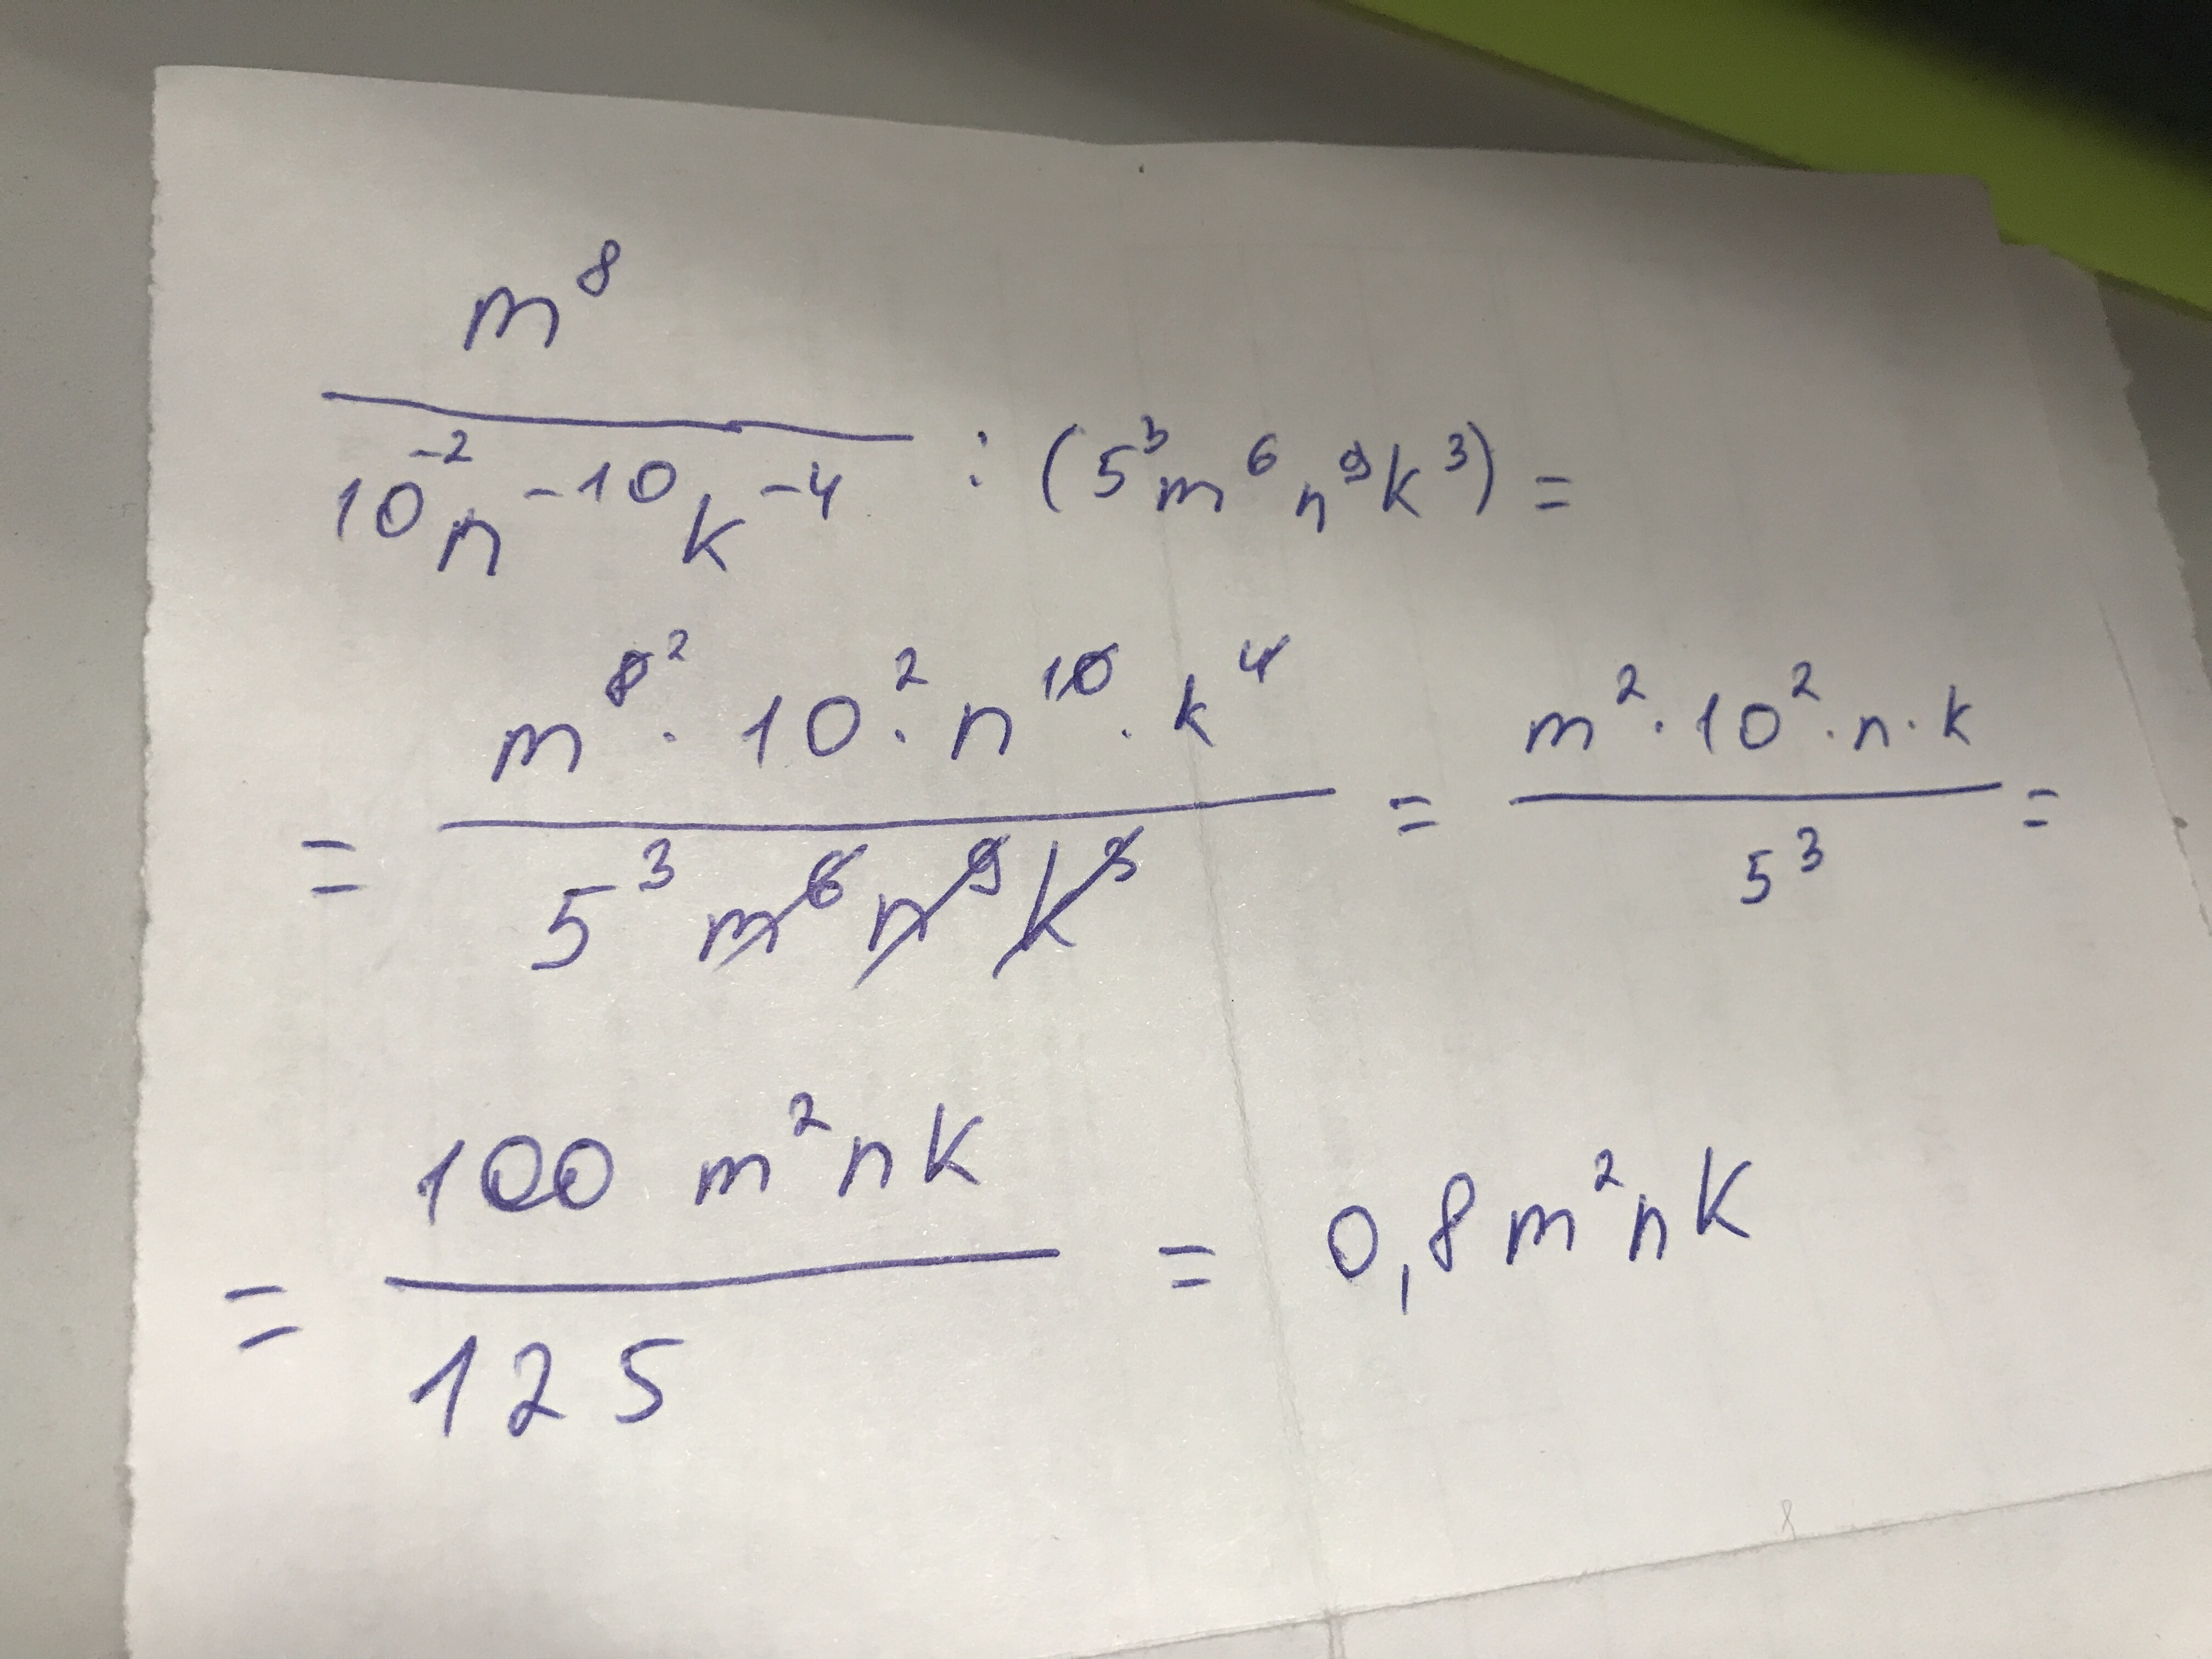 m⁸ / 10⁻²n⁻¹⁰k⁻⁴ : (5³m⁶n⁹k³) =
= m⁸ ² · 10² · n¹⁰ · k⁴ / 5³m⁶n⁹k³ = m² · 10² · n · k / 5³ =
= 100 m²nk / 125 = 0,8 m²nk